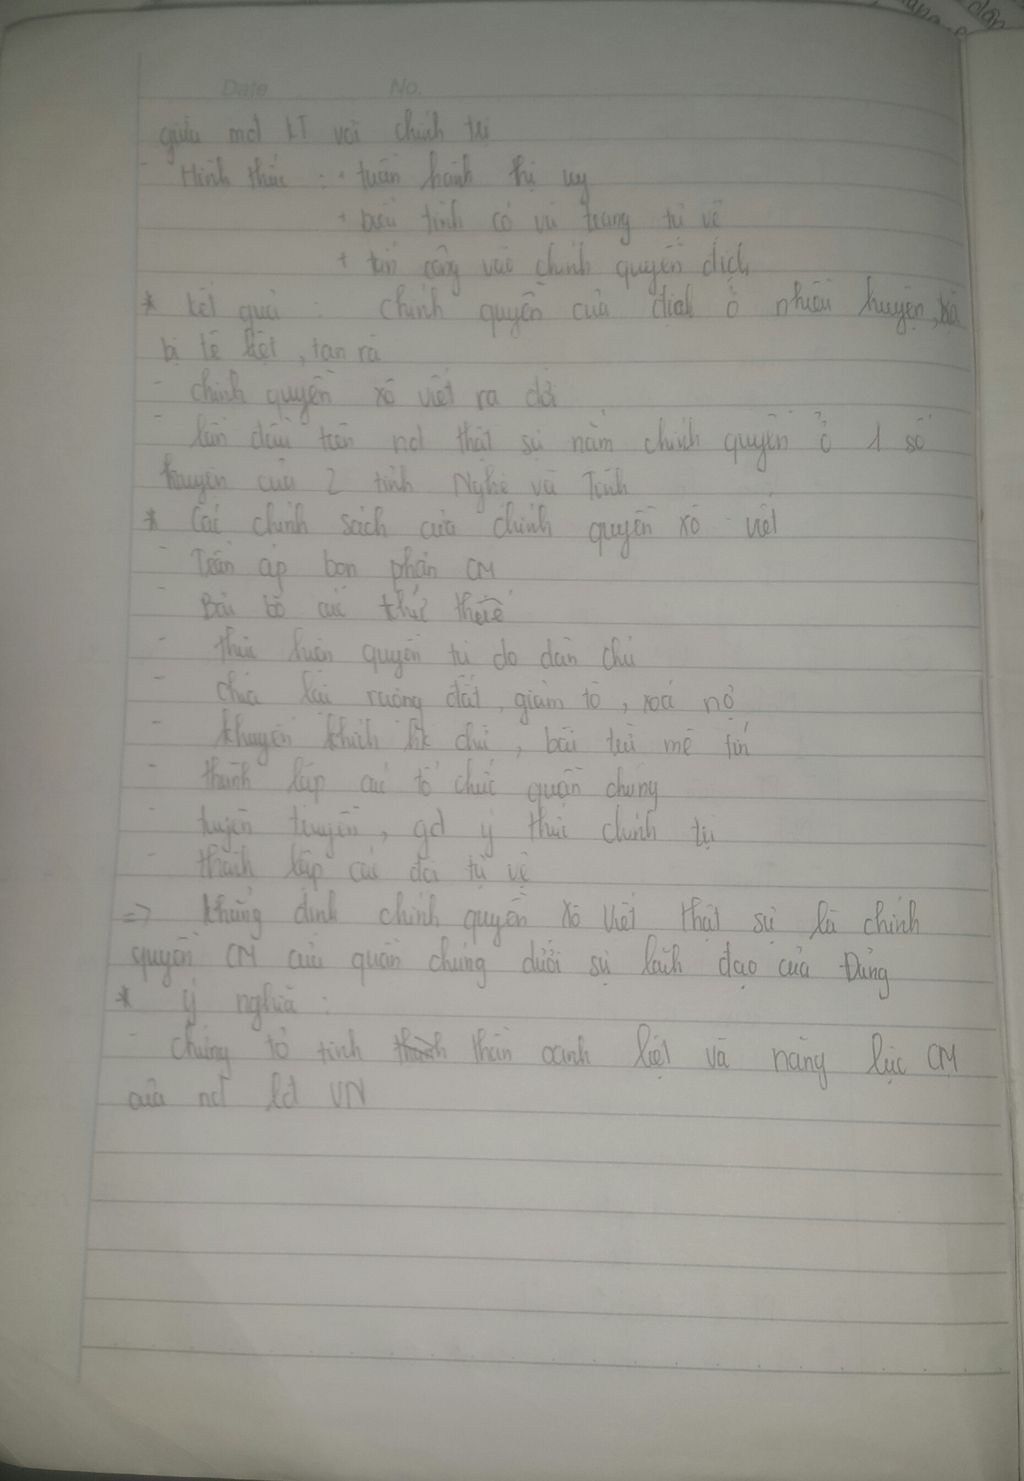 Date No.
giữa md KT với chính trị
- Hình thức : + tuần hành thị uy
+ biểu tình có vũ trang tự vệ
+ tấn công vào chính quyền địch
* Kết quả : chính quyền của địch ở nhiều huyện, xã
bị tê liệt, tan rã
- chính quyền xô viết ra đời
- lần đầu tiên nd thật sự nắm chính quyền ở 1 số
huyện của 2 tỉnh Nghệ và Tĩnh
* Các chính sách của chính quyền xô viết
- Trấn áp bọn phản CM
- Bãi bỏ các thứ thuế
- thực hiện quyền tự do dân chủ
- chia lại ruộng đất, giảm tô, xoá nợ
- khuyến khích hk chữ, bài trừ mê tín
- thành lập các tổ chức quần chúng
- tuyên truyền, gd ý thức chính trị
- thành lập các đội tự vệ
=> khẳng định chính quyền xô viết thật sự là chính
quyền CM của quần chúng dưới sự lãnh đạo của Đảng
* ý nghĩa :
- chứng tỏ tinh thần oanh liệt và năng lực CM
của nd lđ VN
dân